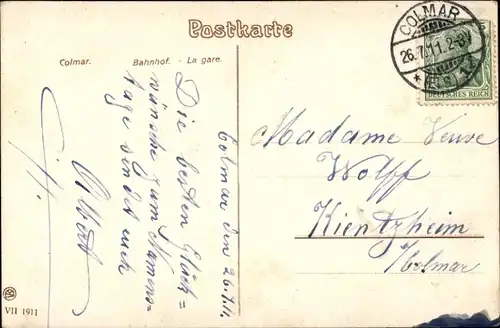 Postkarte
Colmar. Bahnhof. - La gare.
COLMAR
26.7.11. 2-3V
* (ELS.)
DEUTSCHES REICH
Colmar den 26.7.11.
Die besten Glück=
wünsche zum Namens=
tage sendet euch
Albert
Madame Veuve
Wolff
Kientzheim
/Colmar
VII 1911